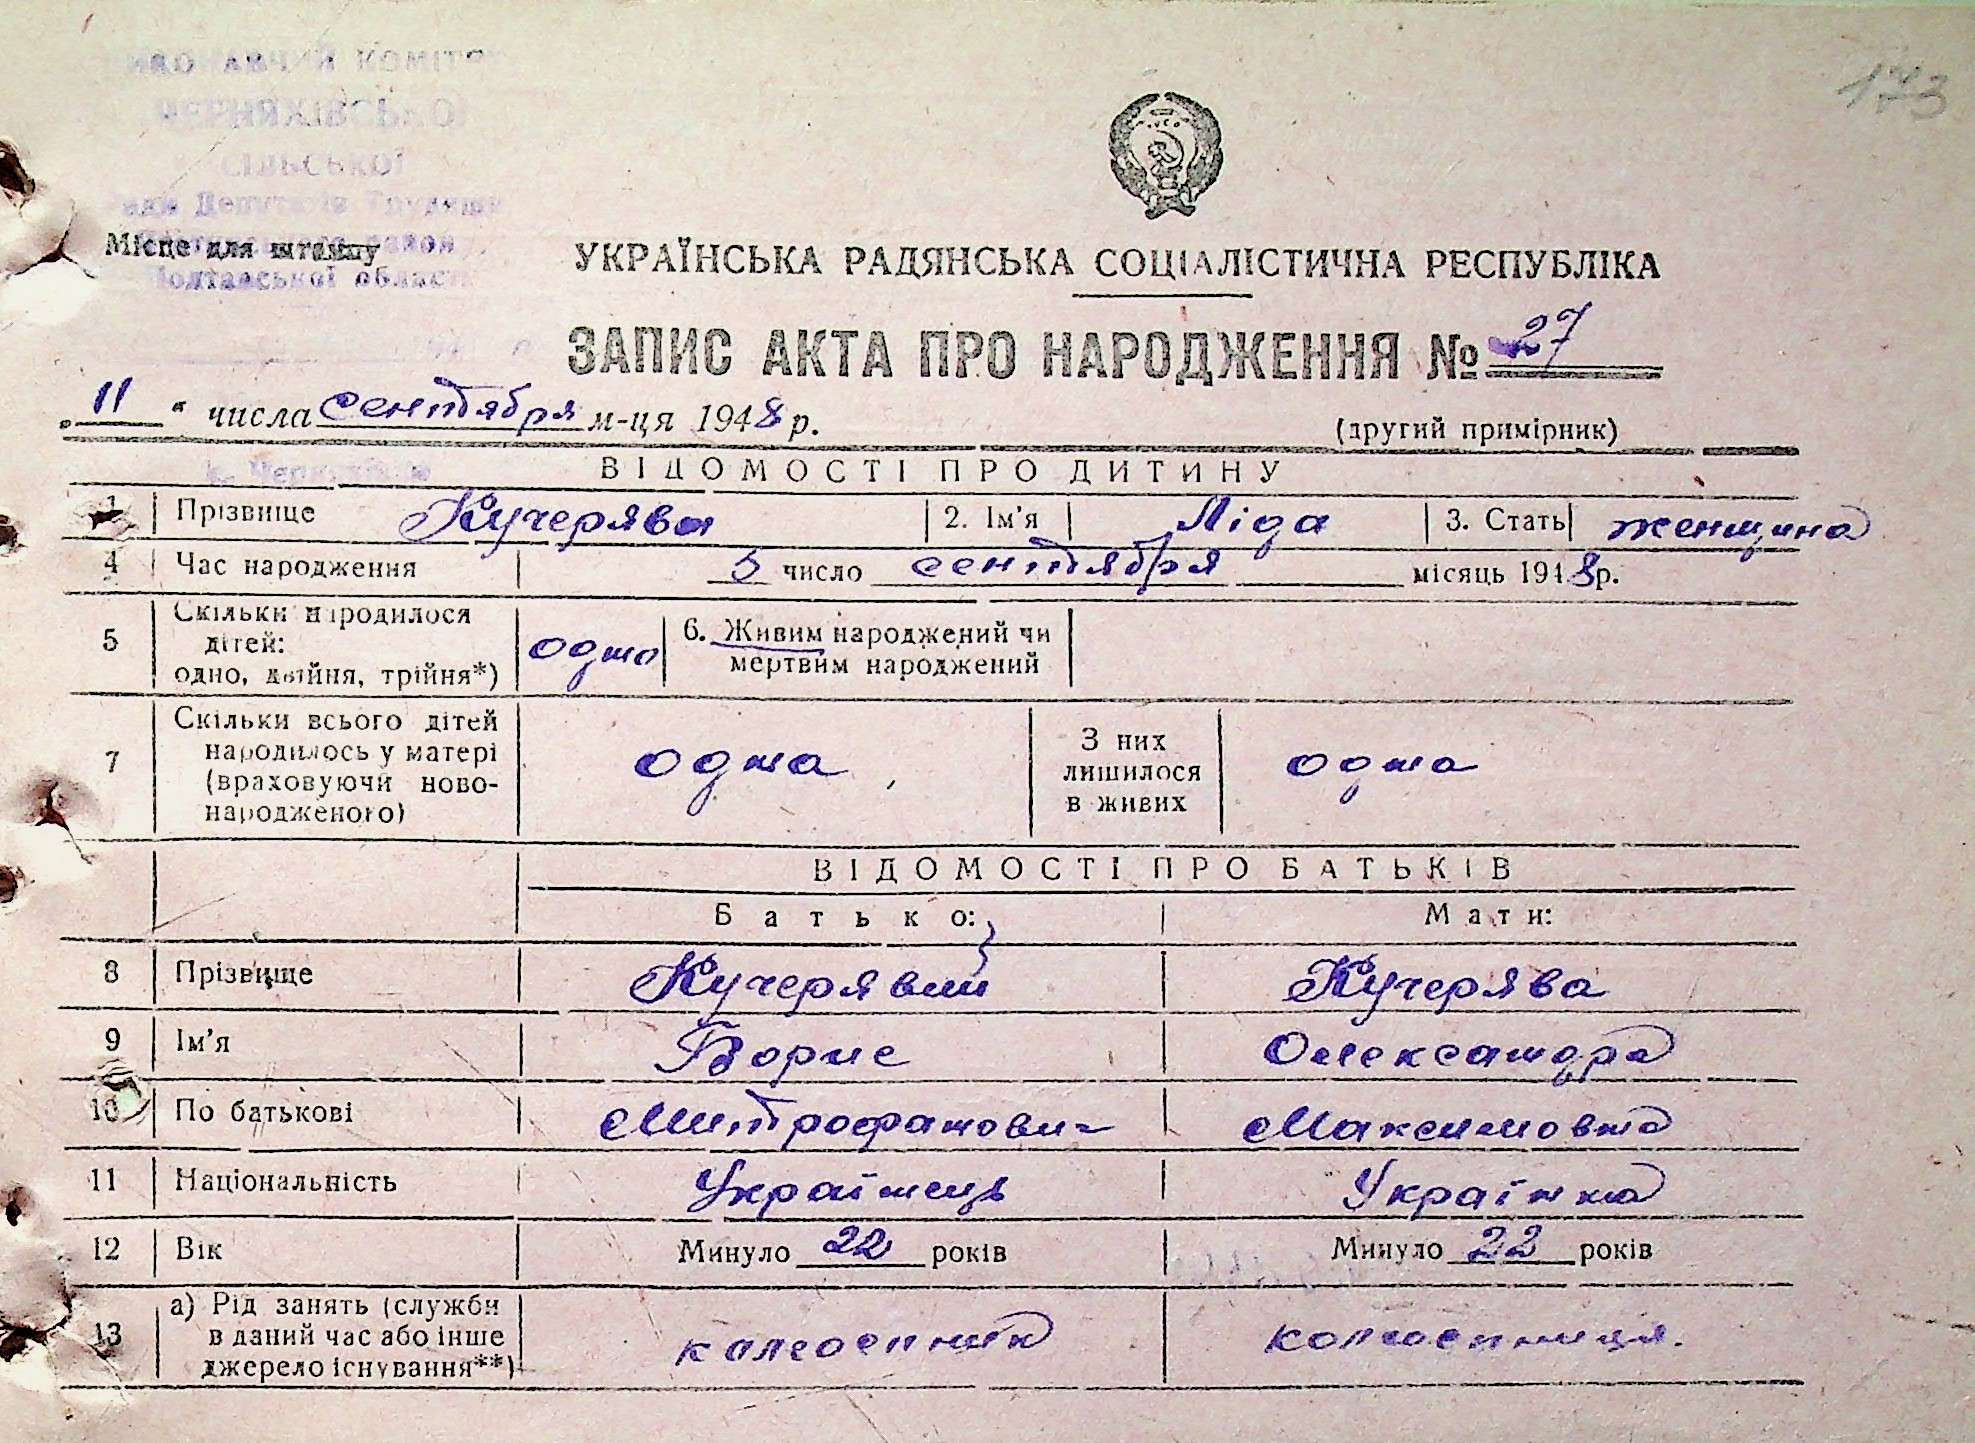 173
КОМІТЕТ
ЧЕРНЯХІВСЬКОЇ
СІЛЬСЬКОЇ
Ради Депутатів Трудящих
Місце для штампу
Полтавської області
УКРАЇНСЬКА РАДЯНСЬКА СОЦІАЛІСТИЧНА РЕСПУБЛІКА
ЗАПИС АКТА ПРО НАРОДЖЕННЯ № 27
„11“ числа сентября м-ця 1948 р.
(другий примірник)
ВІДОМОСТІ ПРО ДИТИНУ
1 Прізвище Кучерява 2. Ім'я Ліда 3. Стать женщина
4 Час народження 5 число сентября місяць 1948р.
5 Скільки народилося дітей: одно, двійня, трійня*) одно 6. Живим народжений чи мертвим народжений
7 Скільки всього дітей народилось у матері (враховуючи новонародженого) одна З них лишилося в живих одна
ВІДОМОСТІ ПРО БАТЬКІВ
Батько: Мати:
8 Прізвище Кучерявий Кучерява
9 Ім'я Борис Олександра
10 По батькові Митрофанович Максимовна
11 Національність Українець Українка
12 Вік Минуло 22 років Минуло 22 років
13 а) Рід занять (служби в даний час або інше джерело існування**) калгоспник колгоспниця.